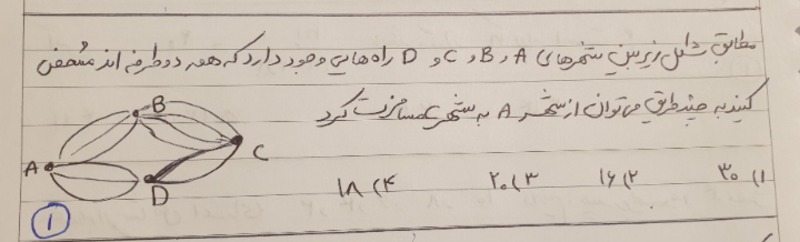 مطابق شکل زیر بین شهرهای A و B و C و D راه هایی وجود دارد که همه دو طرفه اند مشخص
کنید به چند طریق می توان از شهر A به شهر C مسافرت کرد
۱) ۳۰ ۲) ۱۶ ۳) ۲۰ ۴) ۱۸
B
A
C
D
1